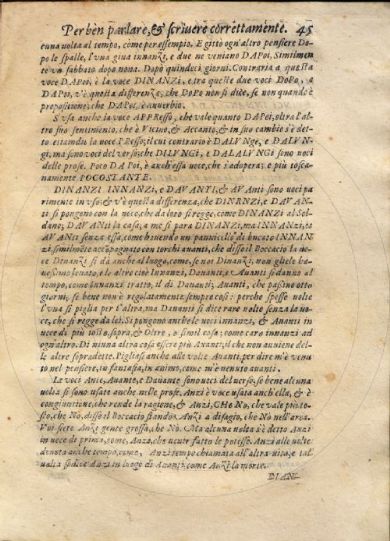 Per bèn parlare, & scriuere correttamente. 45
e una uolta al tempo, come per essempio. E gitto ogn'altro pensiere Dopo
le spalle, l'una giua innanzi, e due ne veniano DAPoi, Similmente
vn sabbato dopo nona. Dopo quindeci giorni. Contraria a questa
voce DAPoi, è la voce DINANZI, e tra queste due voci DoPo, e
DAPoi, v'è questa differenza, che DoPo non si dice, se non quando è
prepositione, che DAPoi, è auuerbio.
S'vsa anche la voce APPResso, che vale quanto DAPoi, oltra l'altro
suo sentimento, che è Vicino, & Accanto, & in suo cambio s'è detto
etiandio la uoce PResso; il cui contrario è DALVNge, e DALVNgi,
ma sono voci del verso; che DILVNGI, e DALALVNGi sono uoci
delle prose. Poco DAPoi, è anch'essa uoce, che s'adopera; e più toscanamente
POCOSTANTE.
DINANZI INNANZi, e DAVANTI, & AVAnti sono uoci parimente
in vso: & v'è questa differenza, che DINANZI, e DAVANTi
si pongono con la uoce, che da loro si regge, come DINANZI al Soldano,
DAVANTi la casa, a me si para DINANZi, ma INNANZi, to
AVANti senza essa, come hauendo un pannicello di bucato INNANZi,
similmente
tempo, come
giorni, se bene non è regolatamente sempre così: perche spesse uolte
l'una si piglia per l'altra, ma Dauanti si dice rare uolte senza la uoce,
che si regge da lei. Si pongono anche le uoci Innanzi, & Auanti in
uece di più tosto, sopra, & Oltre, e simil cosa: come cero innanzi ad
ogn'altro. Di niuna altra cosa essere più Auanti, il che non auuiene delle
altre sopradette. Pigliasi anche alle volte Auanti, per dire m'è venuto
nel pensiere, in fantasia, in animo, come m'è uenuto auanti.
La voci Anti, Auante, e Dauante sono uoci del uerso, se bene alcuna
uolta si sono usate anche nelle prose. Anzi è voce usata anch'ella, & è
congiuntione, che rende la ragione, & Anzi, CHe No, che vale più tosto,
che Nò, disse il Boccaccio stando Anzi a disagio, che No nell'arca.
Voi sete Anzi gente grossa, che Nò. Ma alcuna uolta s'è detto Anzi
in uece di prima, come, Anzi, che uenire fatto le potesse. Anzi alle uolte
denota anche tempo, come, Anzi tempo chiamata all'altra vita, e taluolta
si dice Anzi in luogo di Auanti, come Anzi la morte.
DIAN-